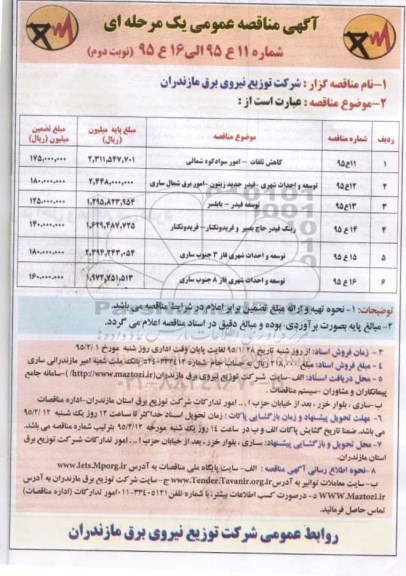 آگهی مناقصه عمومی یک مرحله ای
شماره ۱۱ ع ۹۵ الی ۱۶ ع ۹۵ (نوبت دوم)
۱-نام مناقصه گزار : شرکت توزیع نیروی برق مازندران
۲-موضوع مناقصه : عبارت است از :
ردیف شماره مناقصه موضوع مناقصه مبلغ پایه میلیون (ریال) مبلغ تضمین میلیون (ریال)
۱ ۱۱ع۹۵ کاهش تلفات - امور سوادکوه شمالی ۲,۳۱۱,۵۴۷,۷۰۱ ۱۷۵,۰۰۰,۰۰۰
۲ ۱۲ع۹۵ توسعه و احداث شهری -فیدر جدید زیتون -امور برق شمال ساری ۲,۴۴۸,۰۰۰,۰۰۰ ۱۸۰,۰۰۰,۰۰۰
۳ ۱۳ع۹۵ توسعه فیدر - بابلسر ۱,۲۹۵,۸۲۳,۹۵۴ ۱۲۵,۰۰۰,۰۰۰
۴ ۱۴ ع ۹۵ رینگ فیدر حاج بصیر و فریدونکنار- فریدونکنار ۱,۶۲۹,۴۸۷,۷۲۵ ۱۴۰,۰۰۰,۰۰۰
۵ ۱۵ ع ۹۵ توسعه و احداث شهری فاز ۳ جنوب ساری ۲,۳۹۴,۲۴۳,۰۵۴ ۱۸۰,۰۰۰,۰۰۰
۶ ۱۶ ع ۹۵ توسعه و احداث شهری فاز ۸ جنوب ساری ۱,۹۷۲,۷۵۱,۵۱۳ ۱۶۰,۰۰۰,۰۰۰
توضیحات: ۱-نحوه تهیه و ارائه مبلغ تضمین برابر اعلام در شرایط مناقصه می باشد.
۲-مبالغ پایه بصورت برآوردی، بوده و مبالغ دقیق در اسناد مناقصه اعلام می گردد.
۳ - زمان فروش اسناد: از روز شنبه تاریخ ۹۵/۱/۲۸ لغایت پایان وقت اداری روز شنبه مورخ ۹۵/۲/۱
۴ - مبلغ فروش اسناد: مبلغ
۵ - محل دریافت اسناد: الف-سایت شرکت توزیع نیروی برق مازندران(http://www.maztozi.ir/)-سامانه جامع
پیمانکاران و مشاوران -سیستم مناقصات .
ب-ساری، بلوار خزر، بعد از خیابان حزب ا... امور تدارکات شرکت توزیع برق استان مازندران-اداره مناقصات
۶-مهلت تحویل پیشنهاد و زمان بازگشایی پاکات : زمان تحویل اسناد حداکثر تا ساعت ۱۲ روز یک شنبه ۹۵/۲/۱۲
می باشد. ضمنا تاریخ گشایش پاکات الف و ب در ساعت ۱۴ روز یک شنبه مورخه ۹۵/۲/۱۲ بترتیب شماره مناقصه می باشد.
۷-محل تحویل و بازگشایی پیشنهاد: ساری ، بلوار خزر، بعد از خیابان حزب ا... امور تدارکات شرکت توزیع برق
استان مازندران.
۸-نحوه اطلاع رسانی آگهی مناقصه : الف - سایت پایگاه ملی مناقصات به آدرس www.Iets.Mporg.ir
ب- سایت معاملات توانیر به آدرس www.Tender.Tavanir.org.ir ج- سایت شرکت توزیع برق مازندران به آدرس
WWW.Maztozi.ir د- درصورت کسب اطلاعات بیشتر، با شماره تلفن ۳۳۴۰۵۱۲۱-۰۱۱ امور تدارکات (اداره مناقصات)
تماس حاصل فرمائید.
روابط عمومی شرکت توزیع نیروی برق مازندران